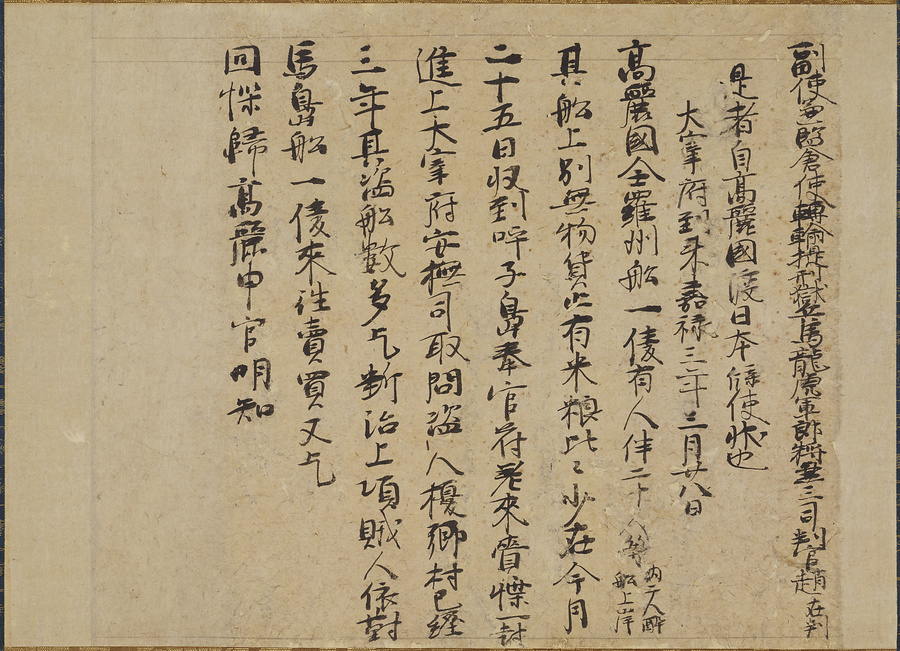 副使兼監倉使轉輸提刑獄兵馬龍虎軍郎將兼三司判官趙 在判
是者自高麗國渡日本條使状也
大宰府到来嘉禄三年三月廿八日
高麗國全羅州船一隻有人伴二十人等 内二人醉 船上岸
其船上別無物貨止有米粮比々少在今月
二十五日収到 子島奉官符 来齎牒一封
進上大宰府安撫司取問盗人複郷村已経
三年其盗船数多乞断治上項賊人依對
馬島船一隻來往賣買又乞
回牒歸高麗申官明知